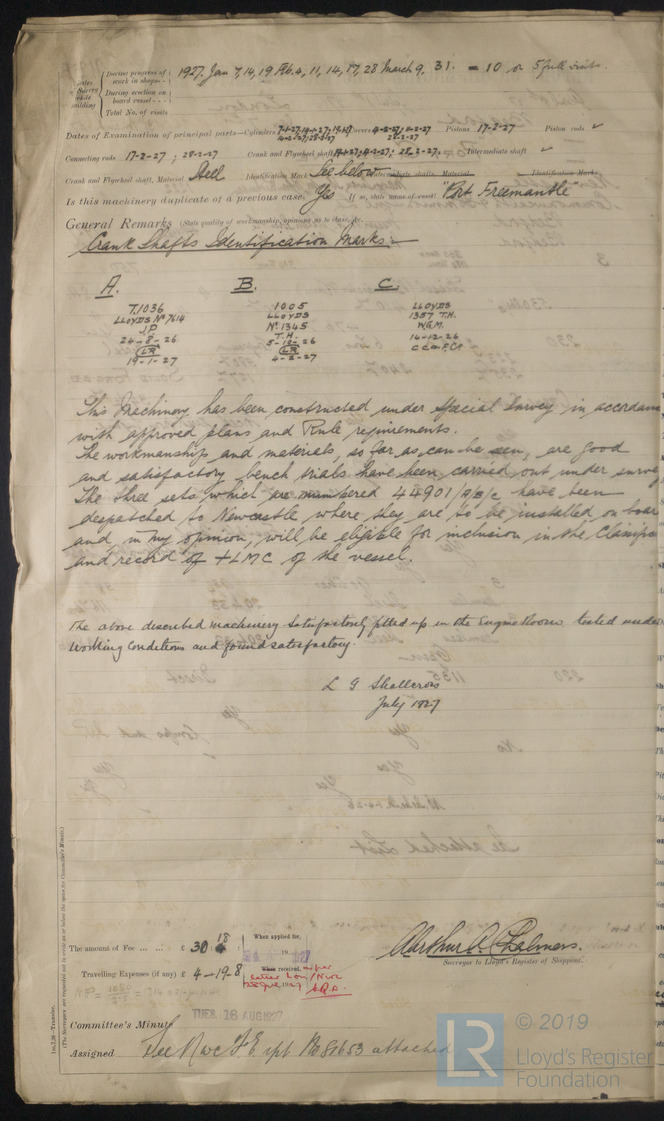 During progress of work in shops - - 1927. Jan 7, 14, 19 Feb. 4, 11, 14, 17, 28 March 9, 31. = 10 or 5 full visits.
During erection on board vessel - - -
Total No. of visits
Dates of Examination of principal parts—Cylinders Covers Pistons 17-2-27 Piston rods ✓
Connecting rods 17-2-27 ; 28-2-27 Crank and Flywheel shafts 28-2-27. Intermediate shaft ✓
Crank and Flywheel shaft, Material Steel Identification Mark See below Intermediate shafts, Material Identification Marks
Is this machinery duplicate of a previous case. Yes If so, state name of vessel "Port Freemantle"
General Remarks (State quality of workmanship, opinions as to class, &c.
Crank Shafts Identification Marks:-
A. B. C.
T.1036 1005 LLOYDS
LLOYDS No 7614 LLOYDS 1357 T.H.
J.P No. 1345 W.G.M.
24-8-26 T.H. 14-12-26
LR 5-10-26
19-1-27 LR
4-2-27
This Machinery has been constructed under Special Survey in accordan
with approved plans and Rule requirements.
The workmanship and materials, so far as can be seen, are good
and satisfactory bench trials have been carried out under surve
The three sets which are numbered 44901/A/B/C have been
despatched to Newcastle where they are to be installed on boar
and in my opinion, will be eligible for inclusion in the Classific
and record of +LMC of the vessel.
The above described machinery satisfactorily fitted up in the Engine Room, tested under
working conditions and found satisfactory.
L G Shallcross
July 1927
The amount of Fee ... ... £ 30 : 18 When applied for,
Travelling Expenses (if any) £ 4-19-8 When received,
Arthur A. Chalmers.
Surveyor to Lloyd's Register of Shipping.
Committee's Minute TUES. 16 AUG 1927
Assigned See Nwc F.E. rpt attached
1m.7.26—Transfer.
(The Surveyors are requested not to write on or below the space for Committee's Minute.)
© 2019
LR
Lloyd's Register
Foundation